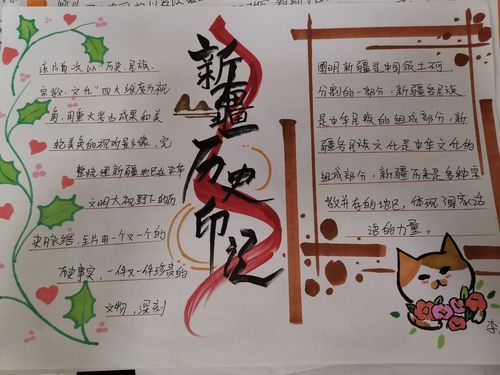 新疆历史印记
该片首次以“历史、民族、
宗教、文化”四大维度为视
角，用重大考古成果和美
轮美奂的视听语言，完
整梳理新疆地区在中华
文明大视野下的历
史脉络，全片用一个又一个的
历史事实，一件又一件珍贵的
文物，深刻
阐明新疆是中国领土不可
分割的一部分，新疆各民族
是中华民族的组成部分，新
疆各民族文化是中华文化的
组成部分，新疆历来是多种宗
教并存的地区，体现了国家话
语的力量。
李